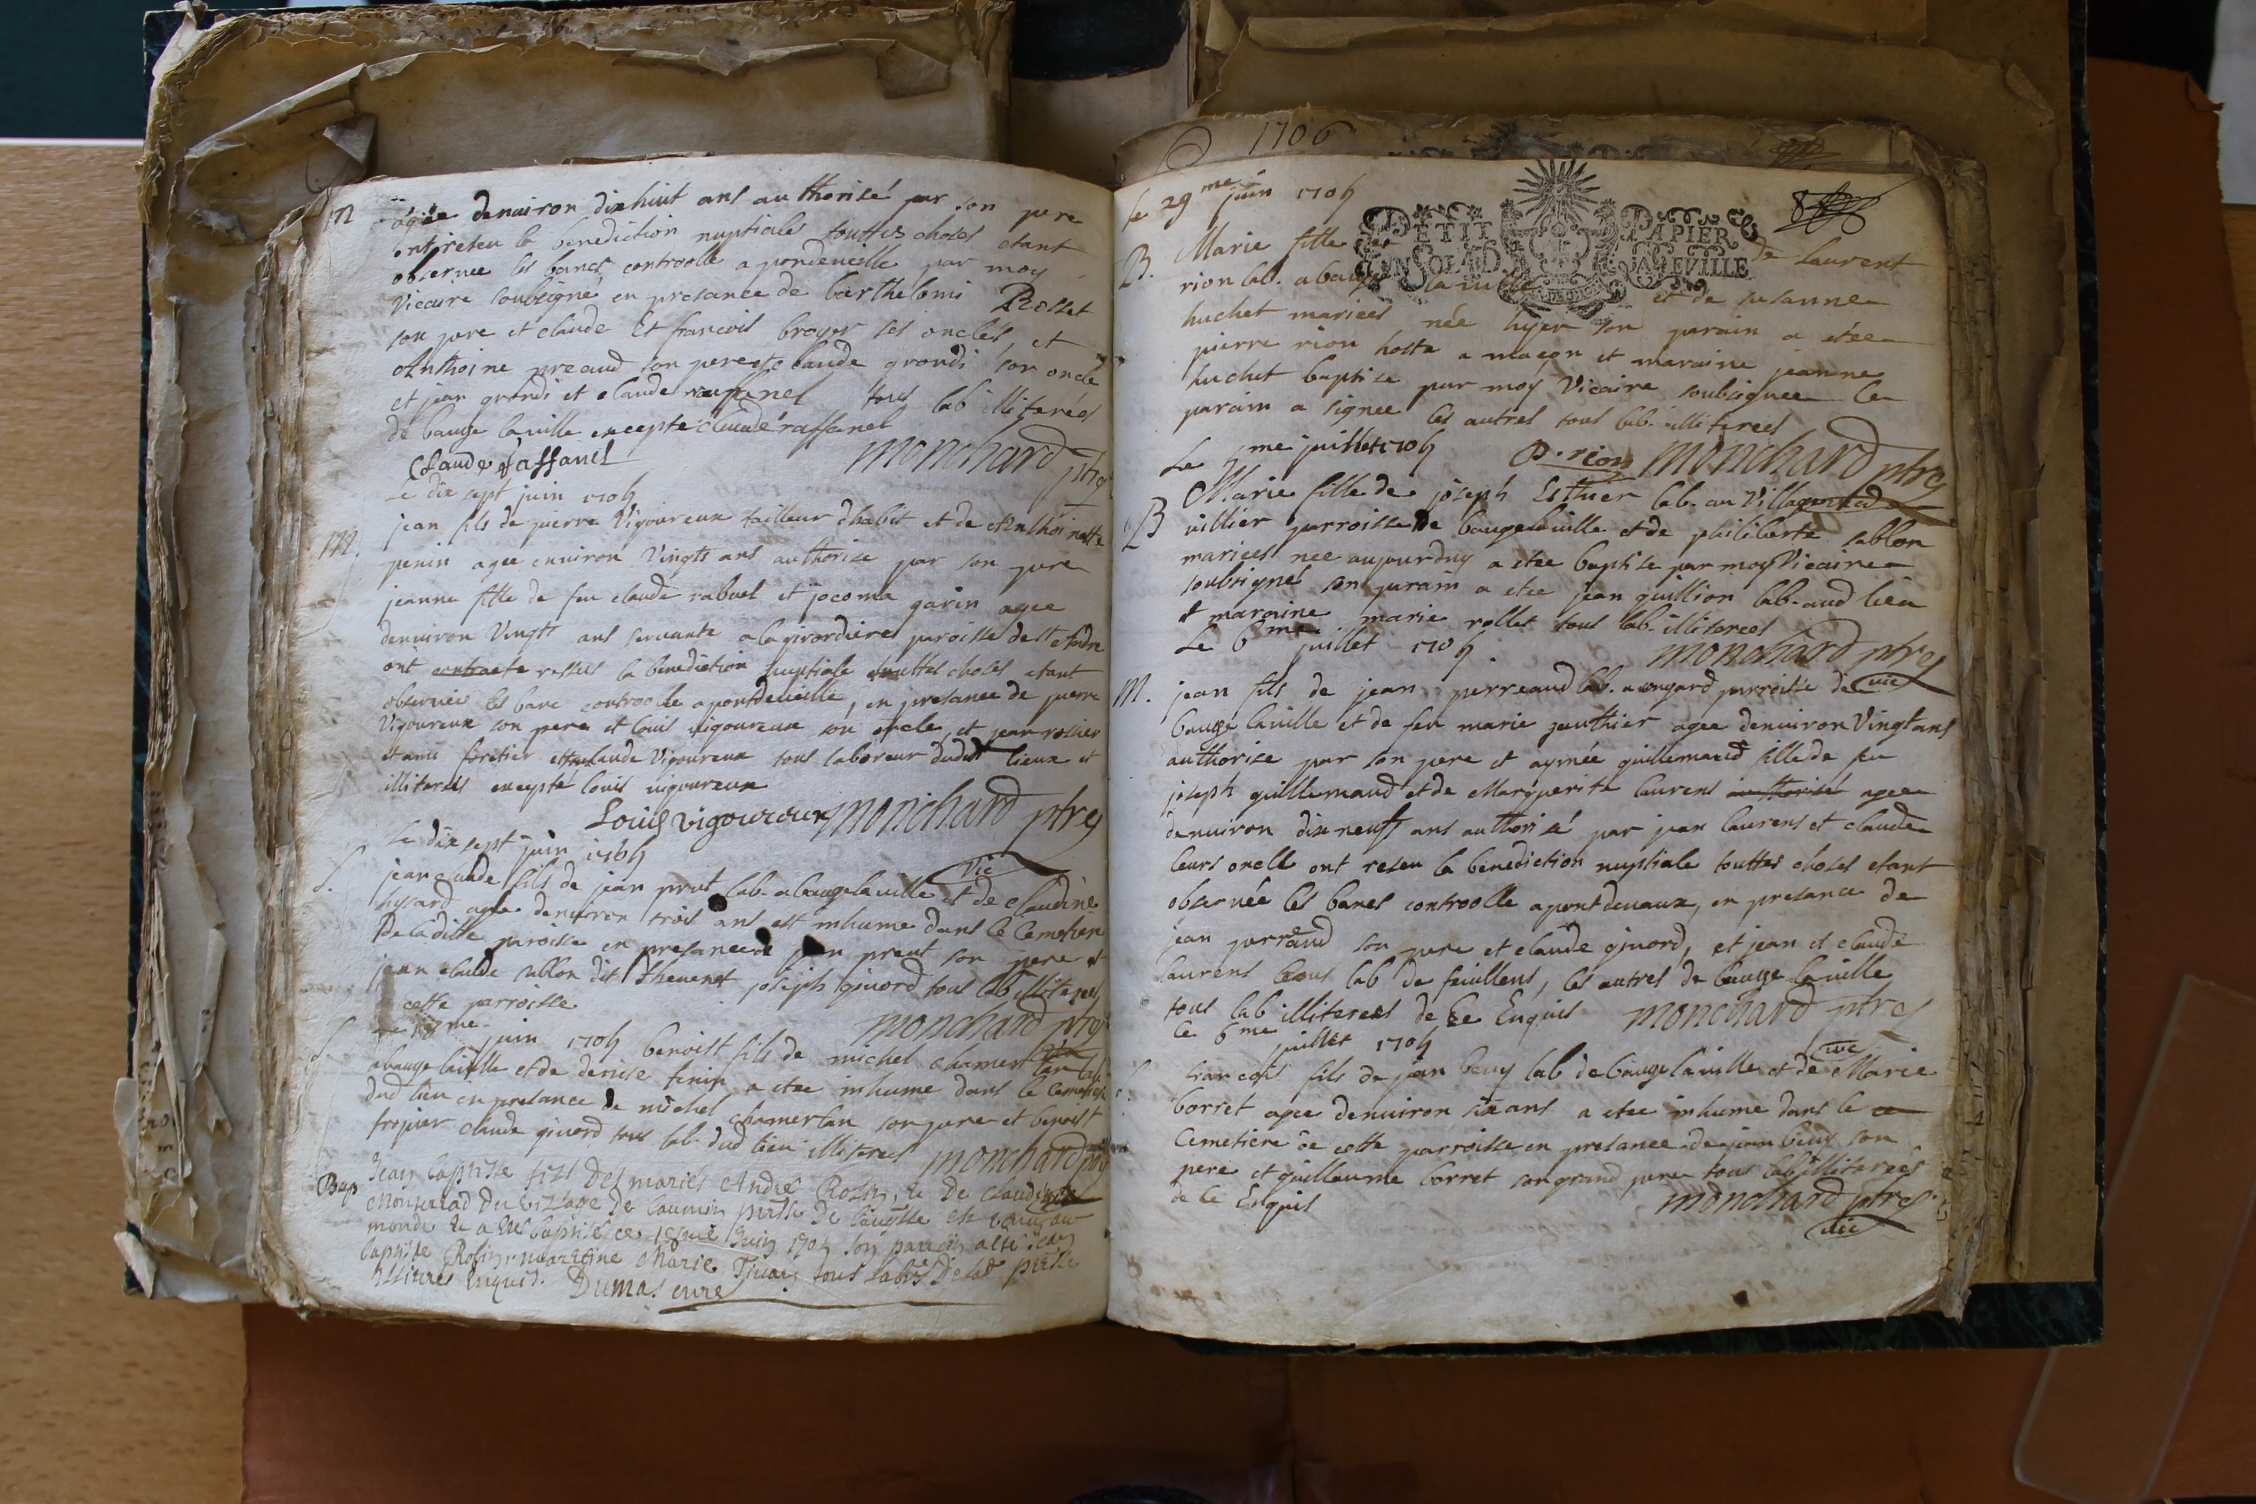 m
agée denuiron dix huit ans authorisé par son pere
ont reseu la benediction nuptiales touttes choses etant
observee les bancs controolle a pondeuelle par moy
Vicaire soubsigné en presance de barthelomi Rosset
son pere et claude Et francois broyer ses oncles, et
Anthoine preaud son pere et claude grondi son oncle
et jean grondi et claude raffanel tous lab illiterés
de bauge lauille excepte claude raffanel
Claude raffanel monchard ptre
Le dix sept juin 1705
m.
jean fils de pierre Vigoureux tailleur dhabit et de Anthoinette
penin agee enuiron Vingts ans authorize par son pere
jeanne fille de feu claude rabuel et jacoma garin agee
denuiron Vingts ans seruante a la girardiere paroisse de st Andre
ont contracte ressus la benediction nuptiale touttes choses etant
observées les banc controolle a pontdeuelle, en presance de pierre
Vigoureux son pere et louis uigoureux son oncle, et jean rosier
et ami foretier et claude Vigoureux tous laboreur dudit lieux et
illiterés excepté louis uigoureux
Louis vigouroux monchard ptre
vic
Le dix sept juin 1705
S.
jean claude fils de jean prut lab. a bauge la uille et de claudine
hyvard agee denuiron trois ans est inhume dans le Cemetiere
De la ditte paroisse en presance de jean preut son pere et
jean claude sablon dit theuenet joseph giuord tous lab illiterés
de cette parroisse monchard ptre
juin 1705 benoist fils de michel chamerlan lab.
a bauge lauille et de denise tenin a etee inhume dans le Cemetiere
dud lieu en presance de michel chamerlan son pere et benoist
frepier claude giuord tous lab. dud lieu illiterés monchard ptre
Bap
Jean baptiste fils Des mariés André Robin, & De Claudine
Montterrad Du village De Caumin p̄r̄s̄s̄e De baugé la ville est venu au
monde & a été baptisé ce 18me Juin 1705 son parain a été Jean
baptiste Robin, maraine Marie Tinary tous labrs De lad p̄r̄s̄s̄e
Illitrés enquis. Dumas curé
1706
le 29me juin 1705
PETIT PAPIER
UN SOL A D LA FEVILLE
B.
Marie fille de Laurent
rion lab. a bauge la uille et de susanne
huchet mariees née hyer son parain a etee
pierre rion hoste a macon et maraine jeanne
huchet baptise par moy Vicaire soubsignee le
parain a signee les autres tous lab. illiterées
P. rion monchard ptre
Le 5me juillet 1705
B
Marie fille de joseph Esthier lab. au Village
uillier parroisse de bauge lauille et de philiberte sablon
mariees nee aujourdhuy a etee baptise par moy Vicaire
soubsigné son parain a etee jean guillion lab. aud lieu
& maraine marie rollet tous lab. illiterees
Le 6me juillet 1705 monchard ptre
vic
M.
jean fils de jean perreaud lab. a parroisse de
bauge lauille et de feu marie gauthier agee denuiron Vingt ans
authorize par son pere et aymée guillemaud fille de feu
joseph guillemaud et de Marguerite laurens authorisé agee
denuiron dix neuf ans authorisé par jean laurens et claude
leurs oncle ont reseu la benediction nuptiale touttes choses etant
observée les banes controolle a pont deuaux, en presance de
jean perraud son pere et claude giuord, et jean et claude
laurens tous lab de feuillens, les autres de bauge lauille
tous lab illiterees de Ce Enquis monchard ptre
vic
Le 6me juillet 1705
francois fils de jean beuy lab de bauge lauille et de Marie
borret agee denuiron six ans a etee inhume dans le ce
Cemetiere de cette parroisse en presance de jean beuy son
pere et guillaume borret son grand pere tous lab illiterées
de Ce Enquis monchard ptre
vic